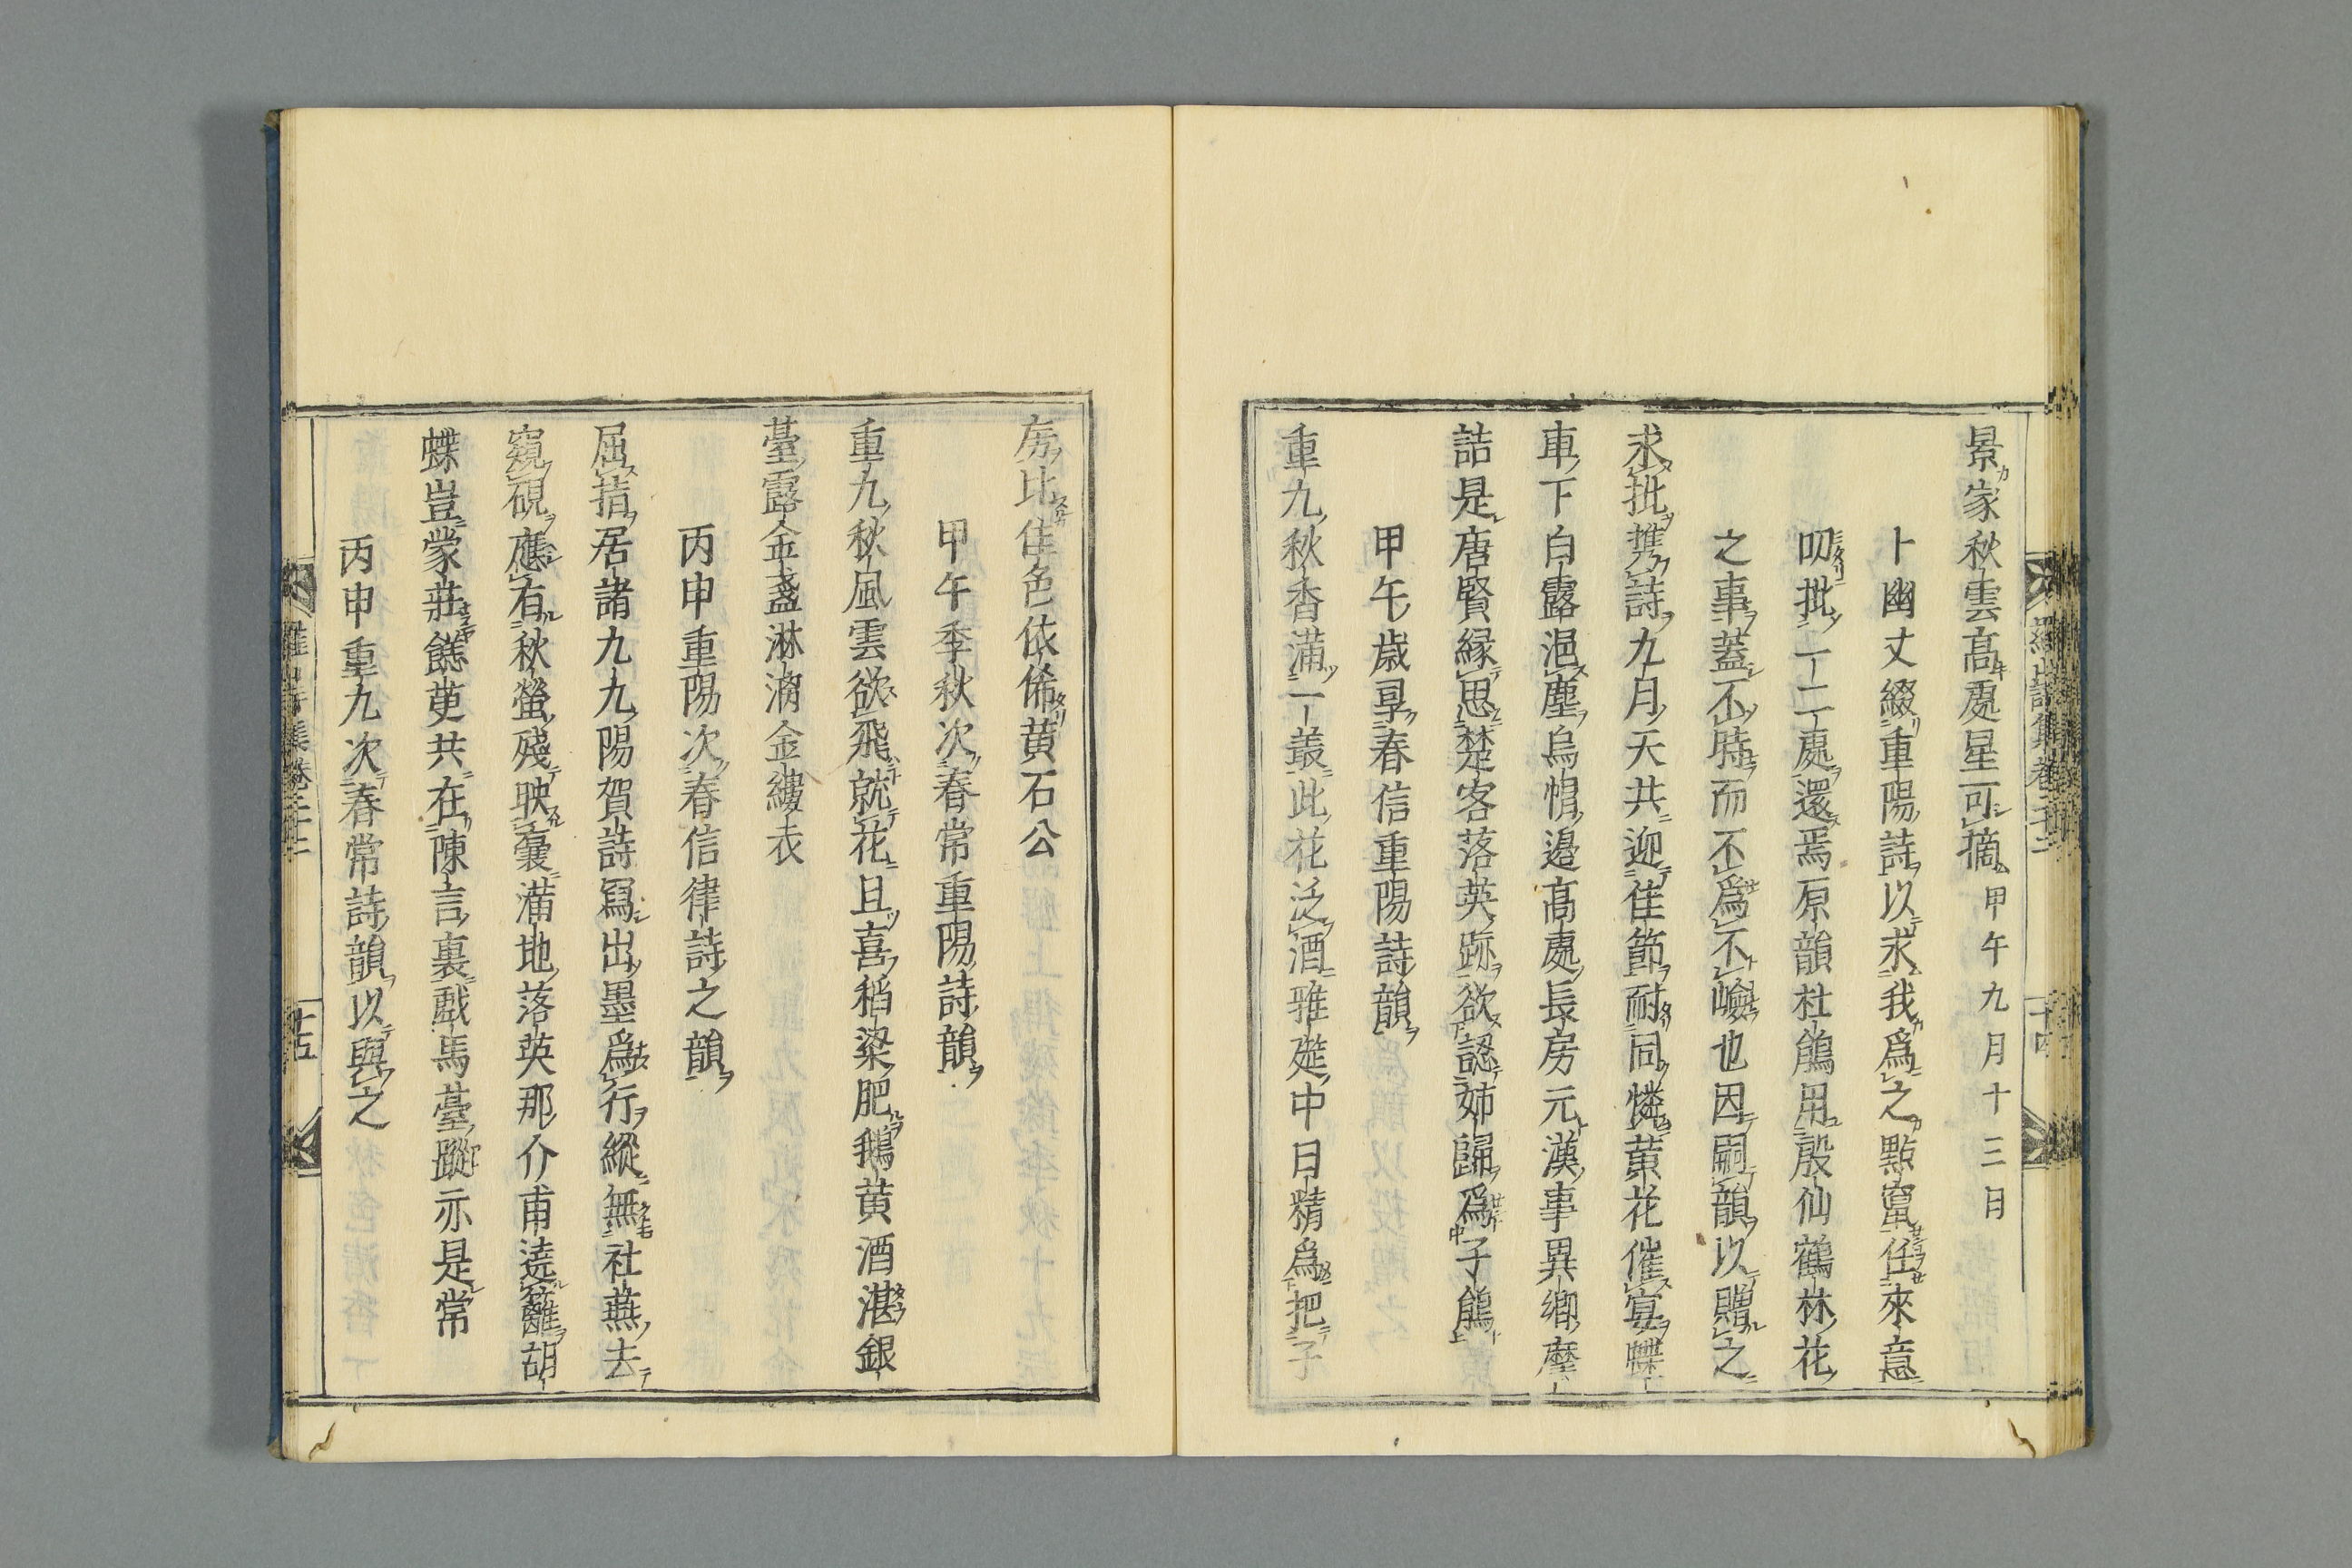 景家秋雲高處星可摘 甲午九月十三日
卜幽丈綴重陽詩以求我爲之點竄任來意
叨批一二處還焉原韻杜鵑用殷仙鶴林花
之事蓋不時而不爲不嶮也因嗣韻以贈之
求批携詩九月天共迎佳節耐同憐黄花催宴蝶
車下白露浥塵烏帽邉高處長房元漢事異郷摩
詰是唐賢縁思楚客落英跡欲認姉歸爲子鵑
甲午歳旦春信重陽詩韻
重九秋香満一叢此花泛酒雅莚中日精爲把子
房比佳色依俙黄石公
甲午季秋次春常重陽詩韻
重九秋風雲欲飛就花且喜稻粱肥鵝黄酒湛銀
臺露金盞淋漓金縷衣
丙申重陽次春信律詩之韻
屈指居諸九九陽賀詩寫出墨爲行縱無社燕去
窺硯應有秋螢殘映囊満地落英那介甫遶籬胡
蝶豈蒙莊餻茰共在陳言裏戯馬臺蹤亦是常
丙申重九次春常詩韻以與之
羅山詩集卷三十二
十四
十五